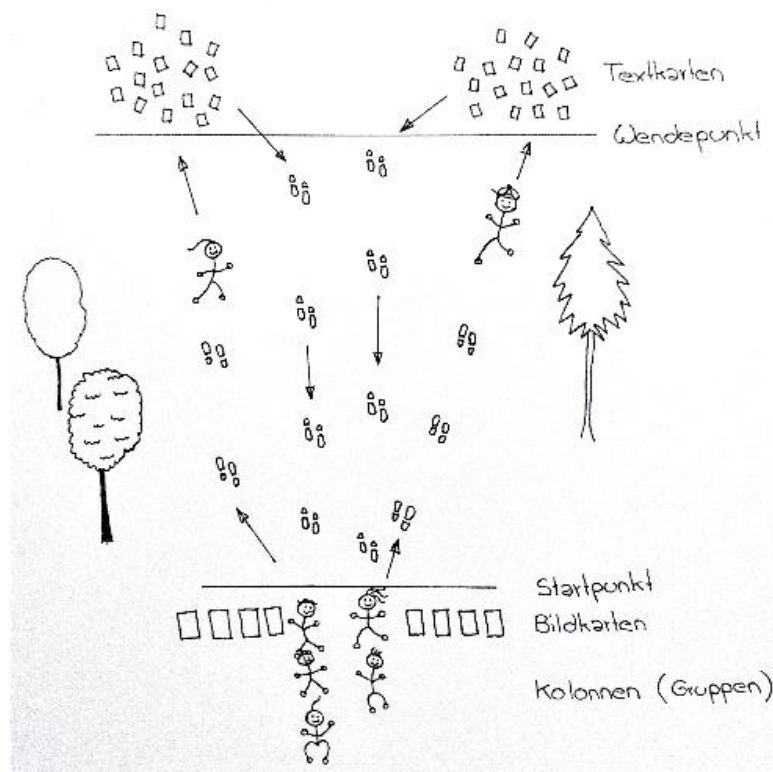 Textkarten
Wendepunkt
Startpunkt
Bildkarten
Kolonnen (Gruppen)